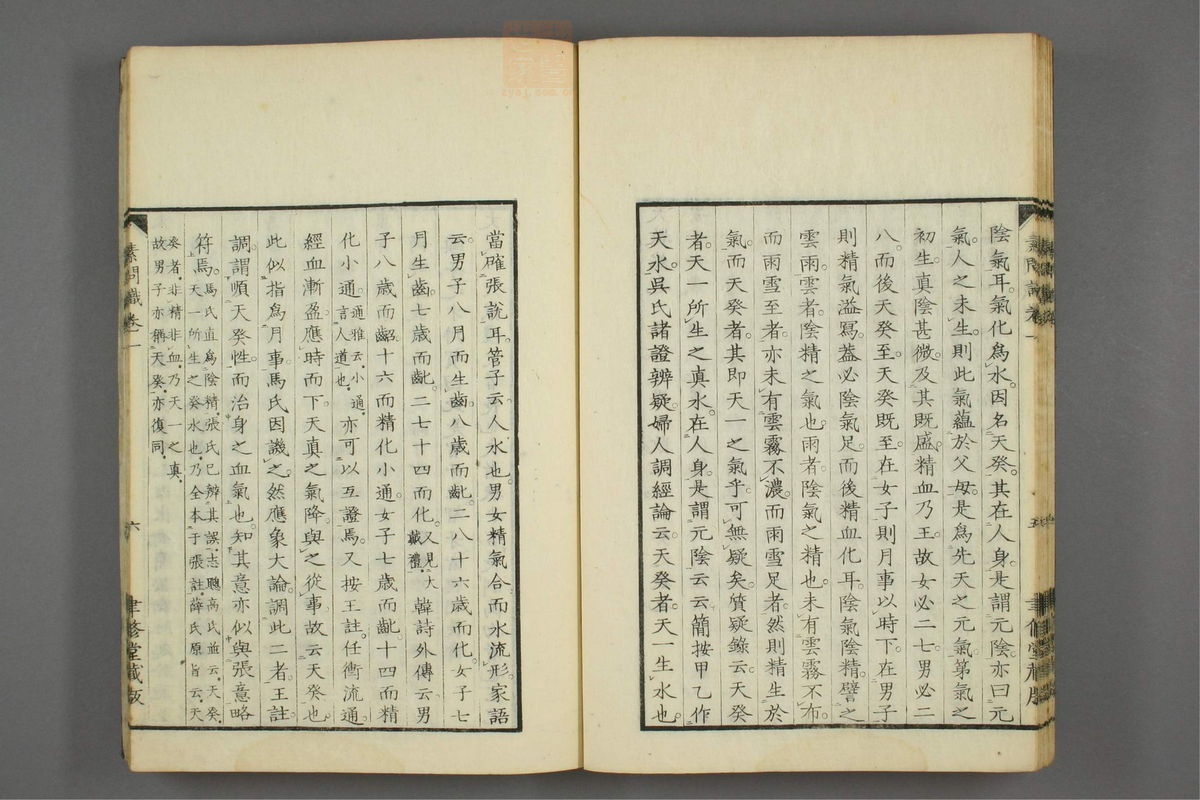 陰氣耳。氣化爲水。因名天癸。其在人身。是謂元陰。亦曰元
氣。人之未生。則此氣蘊於父母。是爲先天之元氣。第氣之
初生。真陰甚微。及其既盛。精血乃王。故女必二七。男必二
八。而後天癸至。天癸既至。在女子則月事以時下。在男子
則精氣溢寫。葢必陰氣足。而後精血化耳。陰氣陰精。譬之
雲雨。雲者。陰精之氣也。雨者。陰氣之精也。未有雲霧不布。
而雨雪至者。亦未有雲霧不濃。而雨雪足者。然則精生於
氣。而天癸者。其即天一之氣乎。可無疑矣。質疑錄云。天癸
者。天一所生之真水。在人身。是謂元陰云云。簡按甲乙作
天水。吳氏諸證辨疑。婦人調經論云。天癸者。天一生水也。
當確張說耳。管子云。人水也。男女精氣合而水流形。家語
云。男子八月而生齒。八歲而齔。二八十六歲而化。女子七
月生齒。七歲而齔。二七十四而化。又見大戴禮。韓詩外傳云。男
子八歲而齠。十六而精化小通。女子七歲而齔。十四而精
化小通。通雅云。小通。言人道也。亦可以互證焉。又按王註。任衝流通。
經血漸盈。應時而下。天真之氣降。與之從事。故云天癸也。
此似指爲月事。馬氏因譏之。然應象大論。調此二者。王註
調謂順天癸性。而治身之血氣也。知其意亦似與張意略
符焉。馬氏直爲陰精。張氏已辨其誤。志聰高氏並云。天癸。天一所生之癸水也。乃全本于張註。薛氏原旨云。天
癸者。非精非血。乃天一之真。故男子亦稱天癸。亦復同。
素問識卷一
六
聿修堂藏版